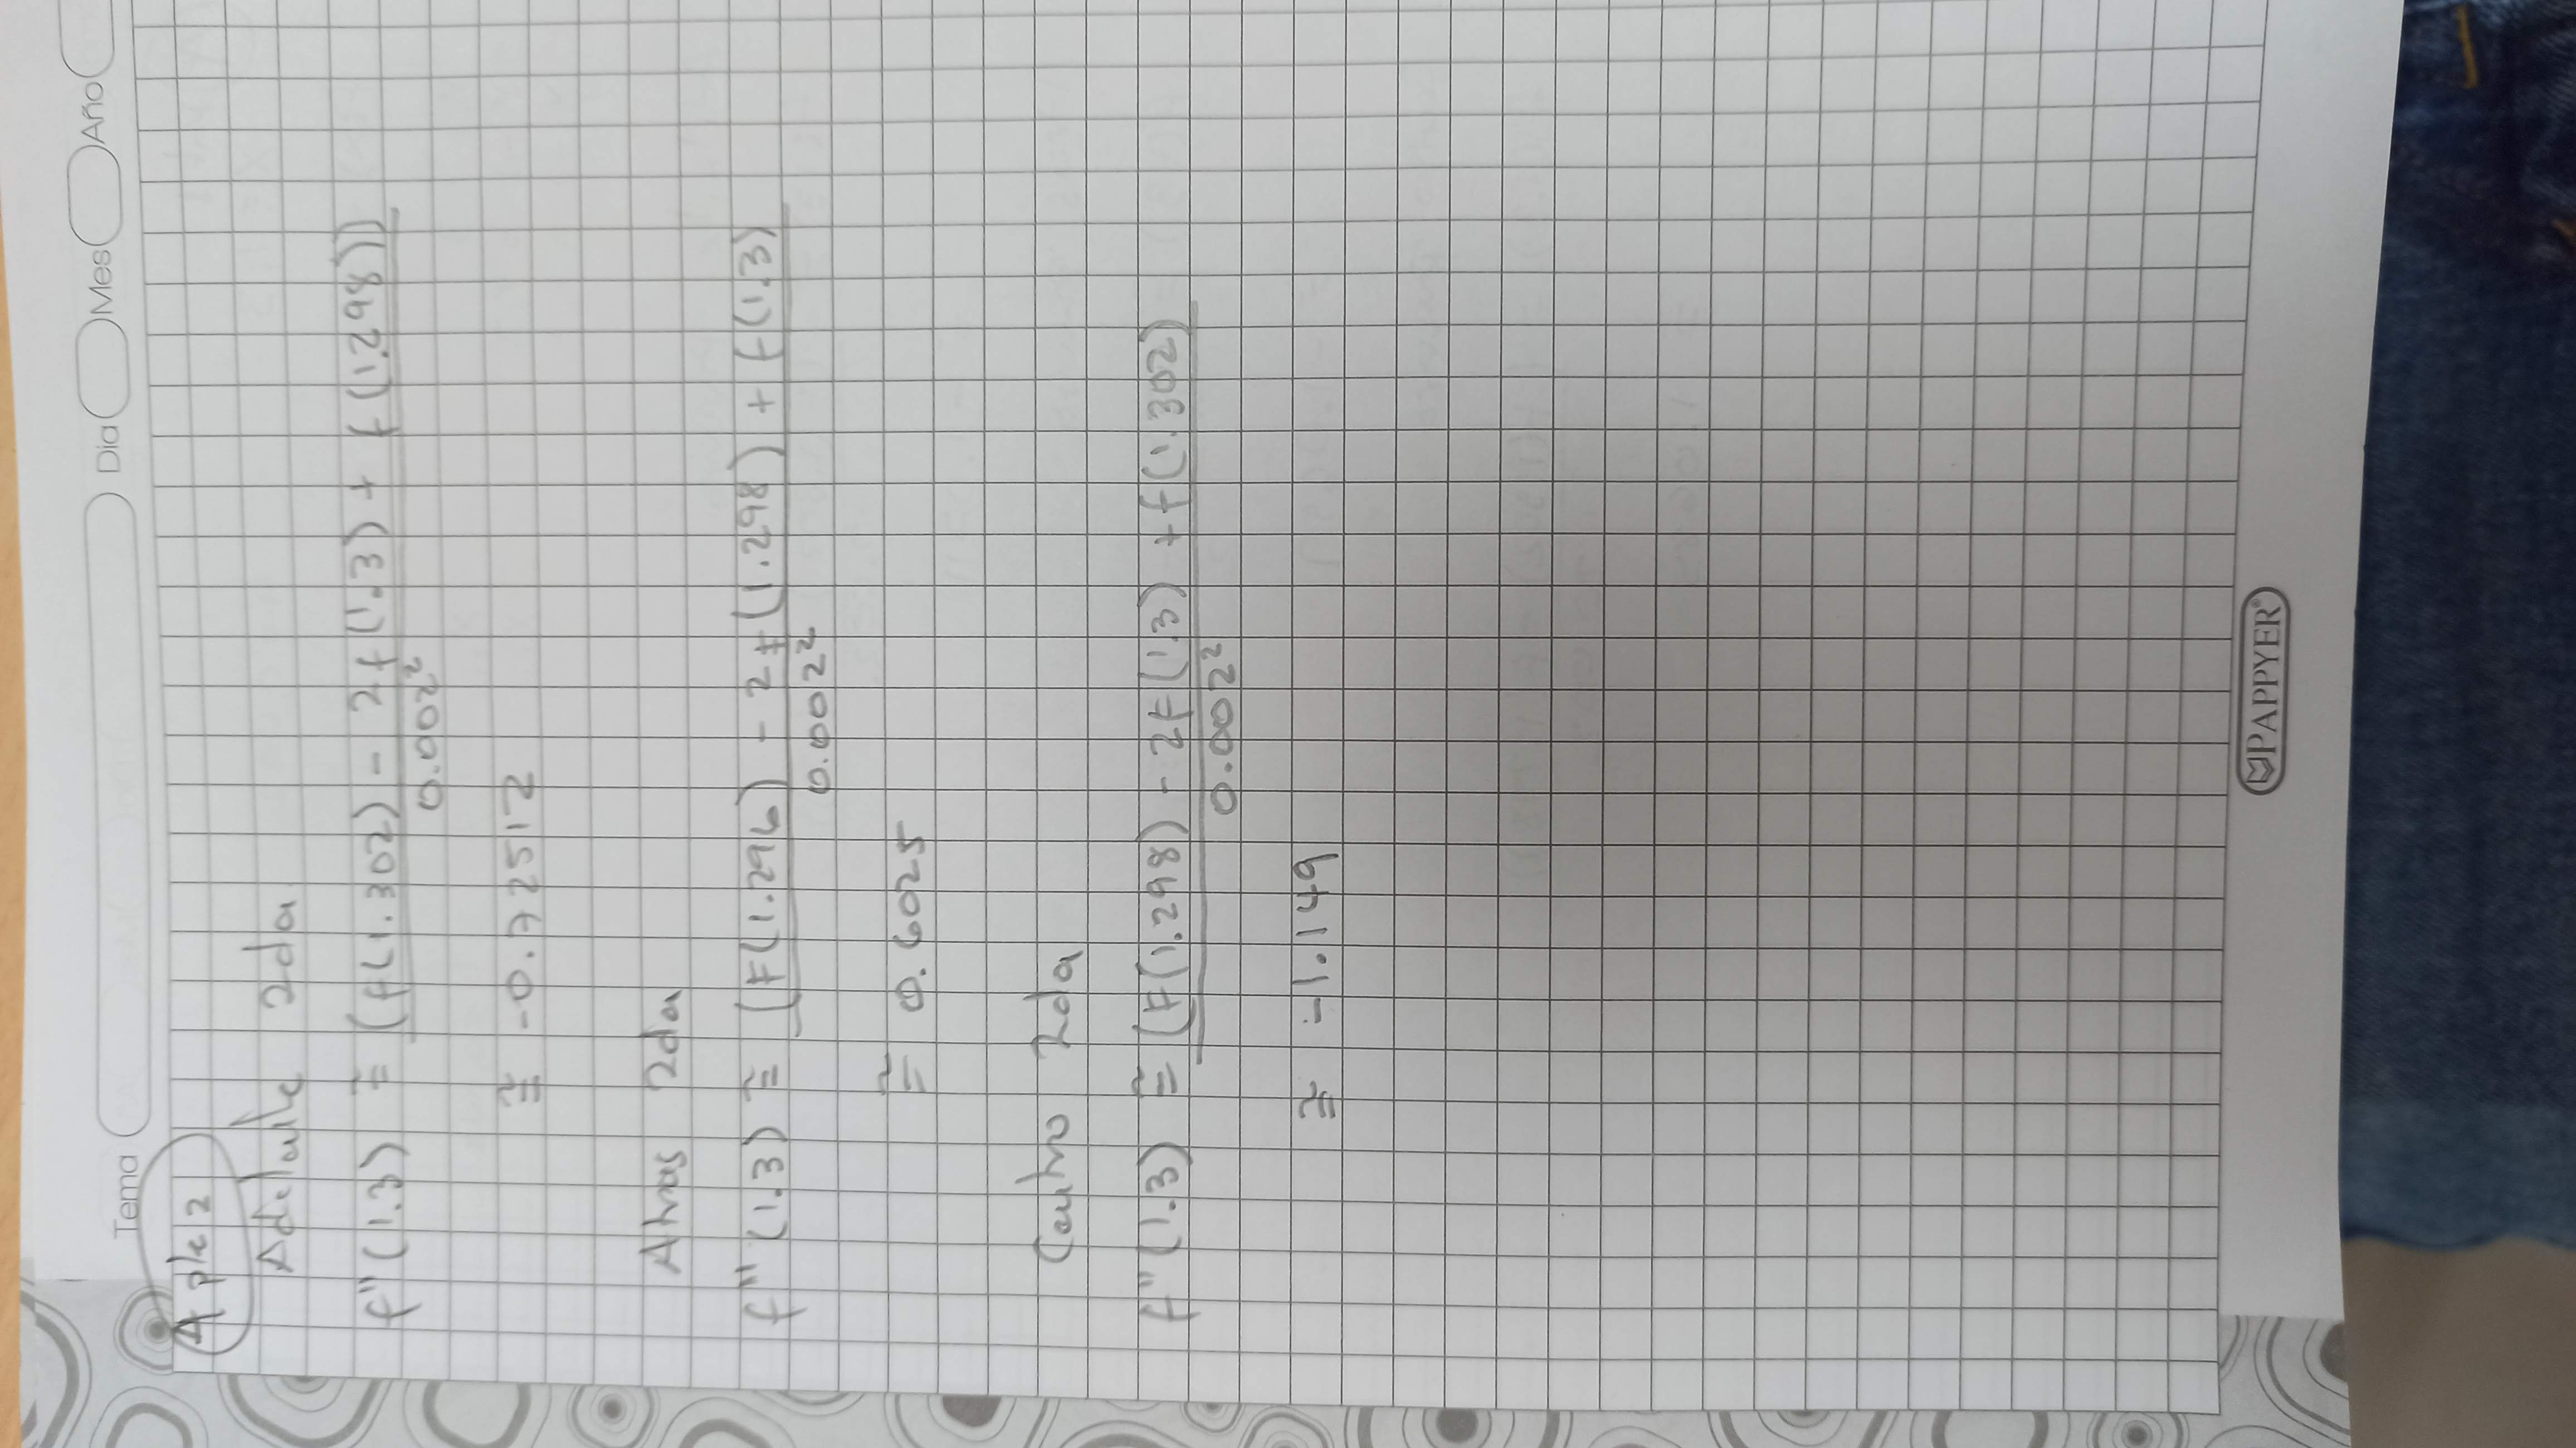 Tema Dia Mes Año
A pte 2
Adelante 2da
f''(1.3) ≅ (f(1.302) - 2f(1.3) + f(1.298))
0.002²
≅ -0.72512
Atras 2da
f''(1.3) ≅ (F(1.296) - 2f(1.298) + f(1.3)
0.002²
≅ 0.6025
Centro 2da
f''(1.3) ≅ (F(1.298) - 2F(1.3) + f(1.302)
0.002²
≅ -1.149
PAPPYER